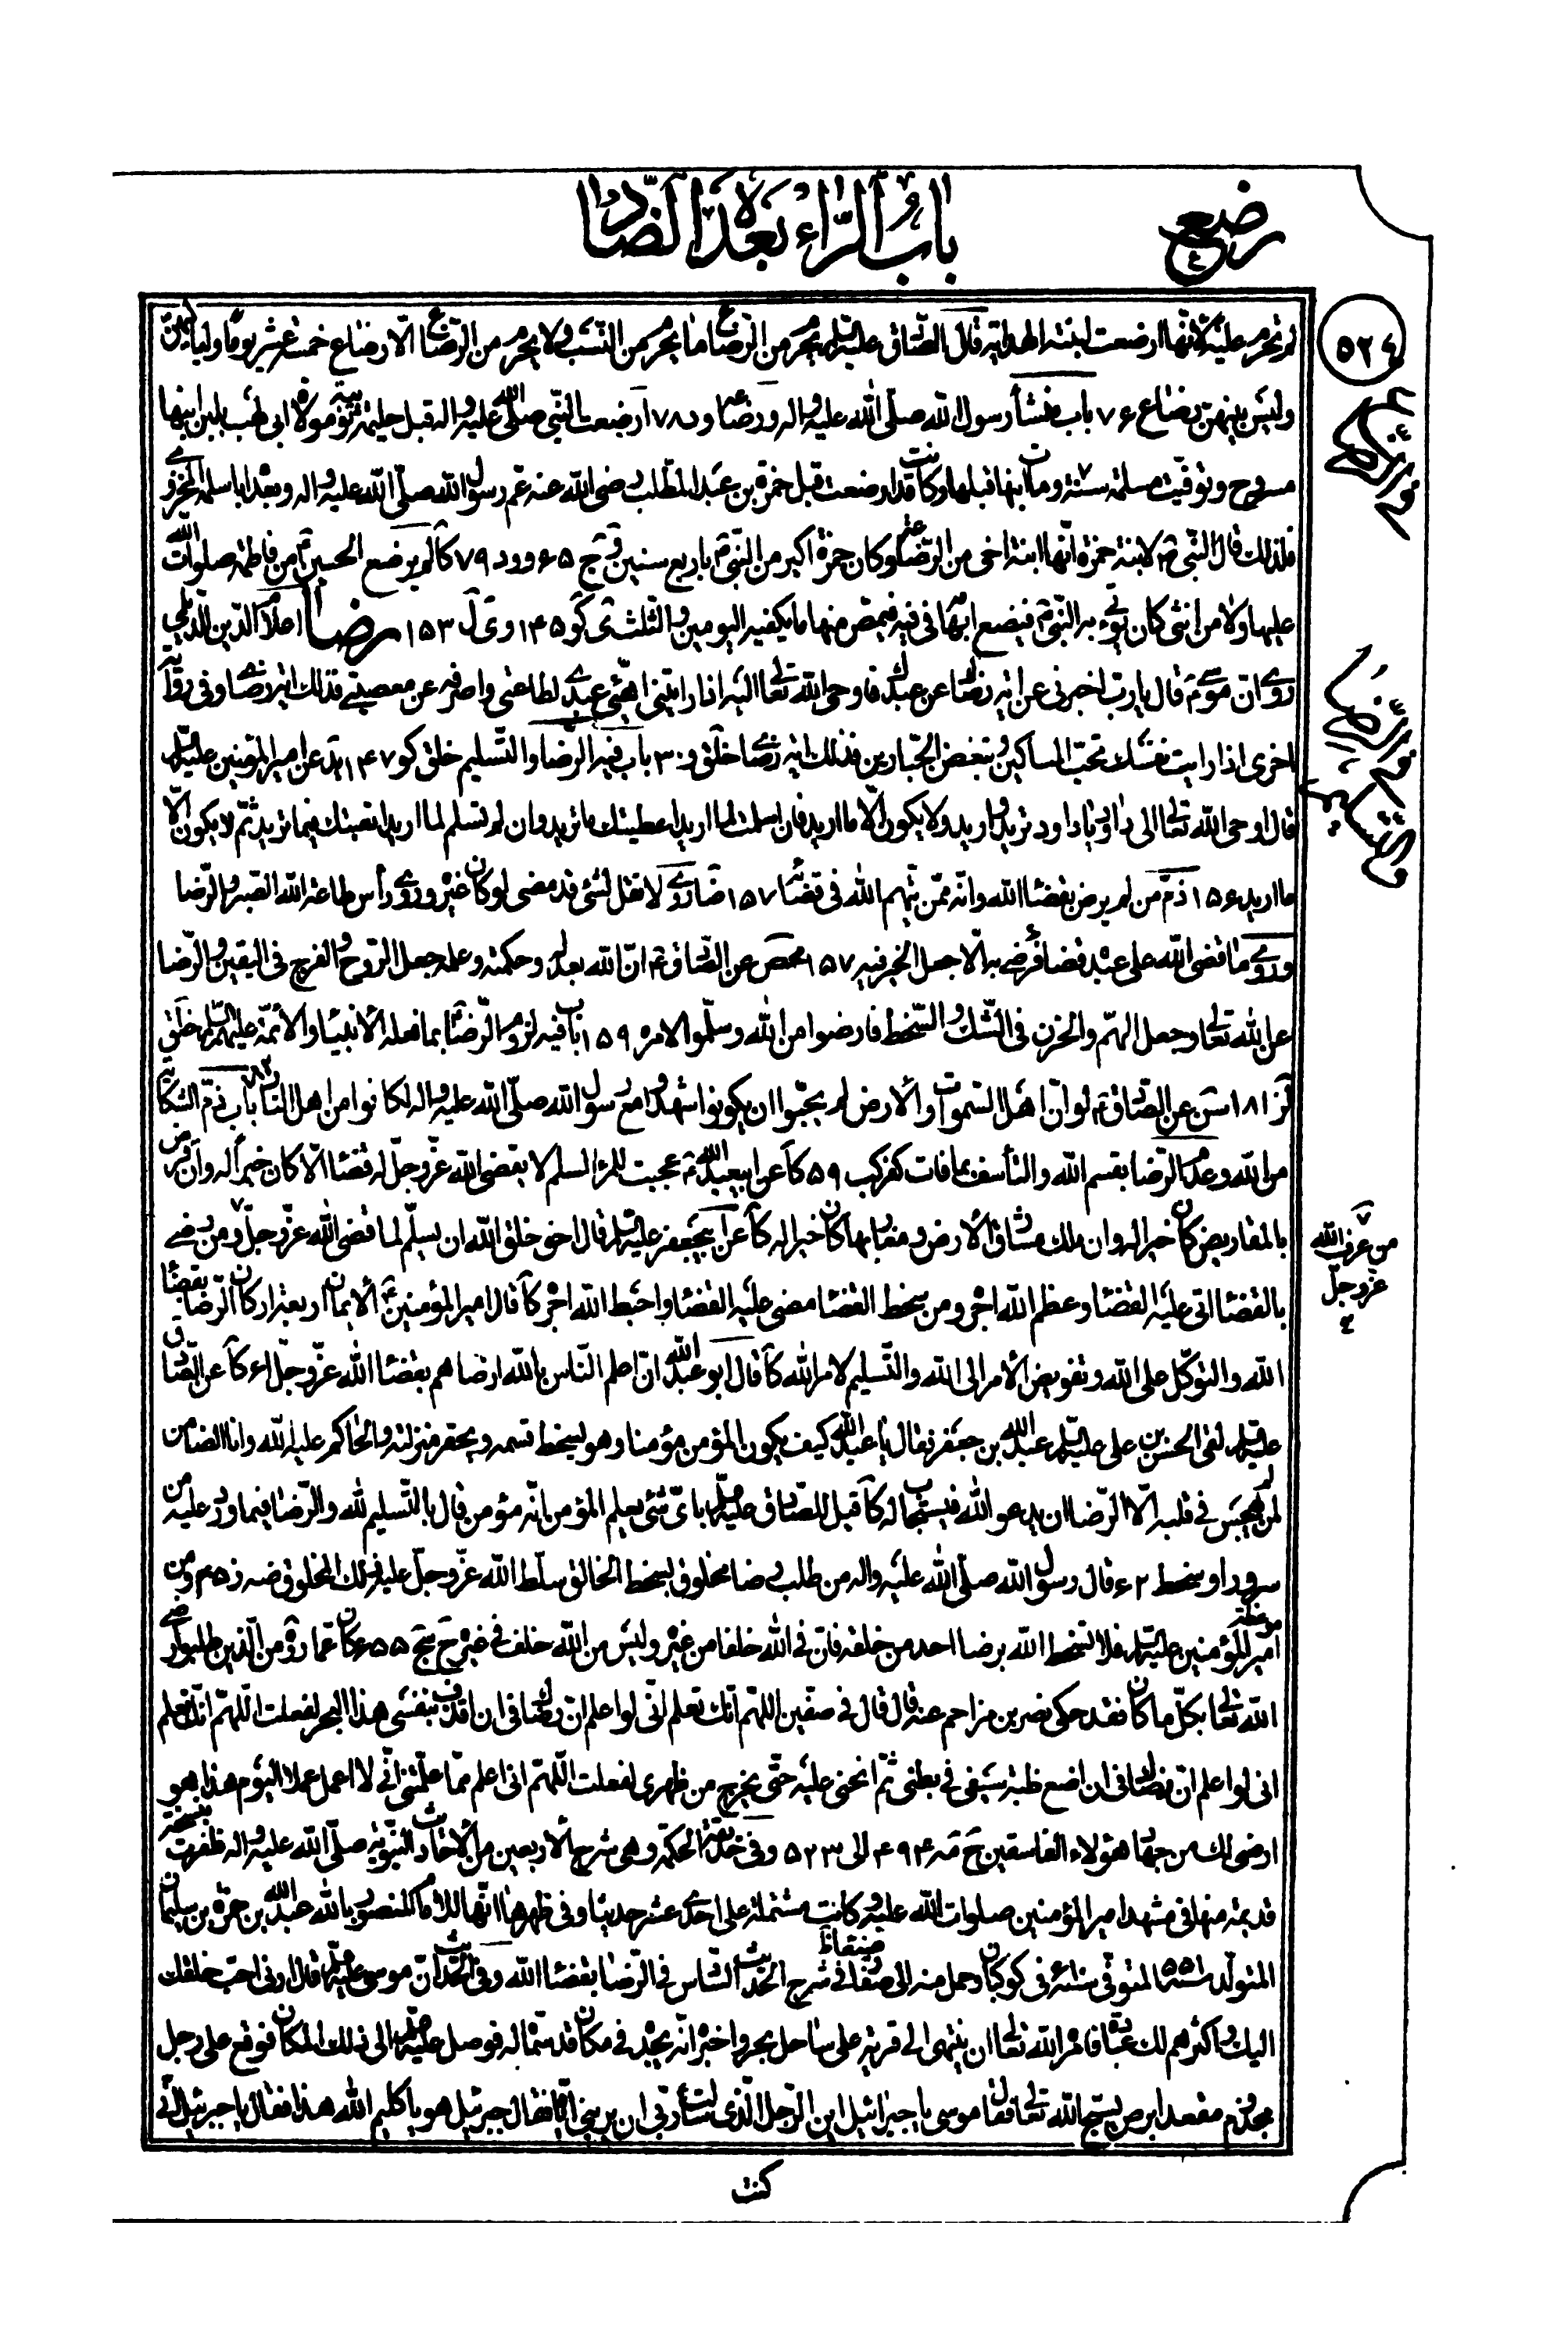 رضع
باب الراء بعد الضاد
٥٢٤
لم تحرم عليه لانها ارضعت ابنته قال الصادق عليه السلم يحرم من الرضاع ما يحرم من النسب ولا يحرم من الرضاع الا رضاع خمسة عشر يوما ولياليهن
وليس بينهن رضاع ٧۶ باب منشأ رسول الله صلى الله عليه واله ورضاعه ود ٧٨ ارضعت النبي صلى الله عليه واله قبل حليمة ثويبة مولاة ابي لهب بلبن ابنها
مسروح وتوفيت مسلمة سنة ٧ ومات ابنها قبلها وكانت قد ارضعت قبل حمزة بن عبد المطلب رضي الله عنه عم رسول الله صلى الله عليه واله وبعده ابا سلمة المخزومي
فلذلك قال النبي لابنة حمزة انها ابنة اخي من الرضاعة وكان حمزة اكبر من النبي باربع سنين وفي ج ۶۵ وود ٧٩ كا لم يرضع الحسين من فاطمة صلوات الله
عليها ولا من انثى كان يؤتى به النبي فيضع ابهامه في فيه فيمص منها ما يكفيه اليومين والثلث ى كو ١۴۵ وى ل ١۵٣ رضا اعلام الدين للديلمي
روى ان موسى قال يا رب اخبرني عن اية رضاك عن عبدك فاوحى الله تعالى اليه اذا رايتني اهيئ عبدي لطاعتي واصرفه عن معصيتي فذلك اية رضاي وفي رواية
اخرى اذا رايت نفسك تحب المساكين وتبغض الجبارين فذلك اية رضاي خلق و ٣٠ باب فيه الرضا والتسليم خلق كو ١۴٧ يد عن امير المؤمنين عليه السلم
قال اوحى الله تعالى الى داود يا داود تريد واريد ولا يكون الا ما اريد فان اسلمت لما اريد اعطيتك ما تريد وان لم تسلم لما اريد اتعبتك فيما تريد ثم لا يكون الا
ما اريد ١۵۶ ذم من لم يرض بقضاء الله وانه ممن يتهم الله في قضائه ١۵٧ ضا روى لا تقل لشئ قد مضى لو كان غيره وروى رأس طاعة الله الصبر والرضا
وروى ما قضى الله على عبده قضاء فرضي به الا جعل الخير فيه ١۵٧ محص عن الصادق ان الله بعدله وحكمته وعلمه جعل الروح والفرج في اليقين والرضا
عن الله تعالى وجعل الهم والحزن في الشك والسخط فارضوا من الله وسلموا لامره ١۵٩ باب فيه لزوم الرضا بما فعله الانبياء والائمة عليهم السلم خلق
لز ١٨١ سن عن الصادق لو ان اهل السموات والارض لم يحبوا ان يكونوا شهدوا مع رسول الله صلى الله عليه واله لكانوا من اهل النار باب ذم الشكاية
من الله وعدم الرضا بقسم الله والتأسف بما فات كفر كب ۵٩ كا عن ابي عبد الله عجبت للمرء المسلم لا يقضى الله عز وجل له قضاء الا كان خيرا له وان قرض
بالمقاريض كان خيرا له وان ملك مشارق الارض ومغاربها كان خيرا له كا عن ابي جعفر عليه السلم قال احق خلق الله ان يسلم لما قضى الله عز وجل ومن رضي
بالقضاء اتى عليه القضاء وعظم الله اجره ومن سخط القضاء مضى عليه القضاء واحبط الله اجره كا قال امير المؤمنين الايمان اربعة اركان الرضا بقضاء
الله والتوكل على الله وتفويض الامر الى الله والتسليم لامر الله كا قال ابو عبد الله ان اعلم الناس بالله ارضاهم بقضاء الله عز وجل كا عن الصادق
عليه السلم لقى الحسن بن علي عليه السلم عبد الله بن جعفر فقال يا عبد الله كيف يكون المؤمن مؤمنا وهو يسخط قسمه ويحقر منزلته والحاكم عليه الله وانا الضامن
لمن لم يهجس في قلبه الا الرضا ان يدعو الله فيستجاب له كا قيل للصادق عليه السلم باي شئ يعلم المؤمن انه مؤمن قال بالتسليم لله والرضا فيما ورد عليه من
سرور او سخط قال رسول الله صلى الله عليه واله من طلب رضا مخلوق بسخط الخالق سلط الله عز وجل عليه ذلك المخلوق ضه ومن
موعظة امير المؤمنين عليه السلم فلا تسخط الله برضا احد من خلقه فان في الله خلفا من غيره وليس من الله خلف في غيره كان عمار من الذين طلبوا رضى
الله تعالى بكل ما كان فقد حكى نصر بن مزاحم عنه قال قال في صفين اللهم انك تعلم اني لو اعلم ان رضاك في ان اقذف بنفسي هذا البحر لفعلت اللهم انك تعلم
اني لو اعلم ان رضاك في ان اضع ظبة سيفي في بطني ثم انحني عليه حتى يخرج من ظهري لفعلت اللهم اني اعلم مما علمتني اني لا اعمل عملا اليوم هذا هو
ارضى لك من جهاد هؤلاء الفاسقين ح مه ۴٩۴ الى ۵٢٣ وفي حديقة الحكمة وهي شرح الاربعين من الاحاديث النبوية صلى الله عليه واله ظفرت بنسخة
قديمة منها في مشهد امير المؤمنين صلوات الله عليه وكانت مشتملة على احدى عشر حديثا وفي ظهرها انها للامام المنصور بالله عبد الله بن حمزة بن سليمان
المتولد سنة ۵۵١ المتوفى سنة في كوكبان وحمل منه الى صنعاء في شرح الحديث السادس في الرضا بقضاء الله وفي الحديث ان موسى عليه السلم قال ارني احب خلقك
اليك واكثرهم لك عبادة فامره الله تعالى ان ينتهى الى قرية على ساحل بحر واخبره انه يجده في مكان قد سماه له فوصل عليه السلم الى ذلك المكان فوقع على رجل
مجذوم مقعد ابرص يسبح الله تعالى فقال موسى يا جبرائيل اين الرجل الذي سألت ربي ان يريني اياه فقال جبرئيل هو يا كليم الله هذا فقال يا جبرئيل اني
من عرف الله
عز وجل
كنت